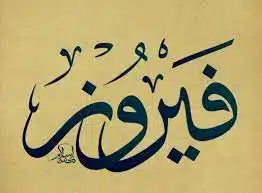 فَيرُوز